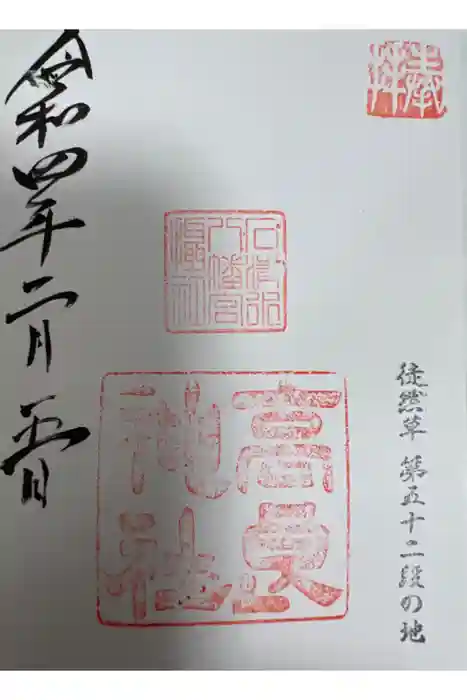 奉拝
徒然草 第五十二段の地
石清水
八幡宮
攝社
高良
神社
令和四年二月五日